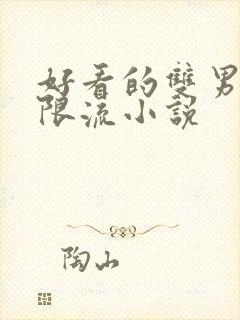 好看的雙男
限流小說
陶山